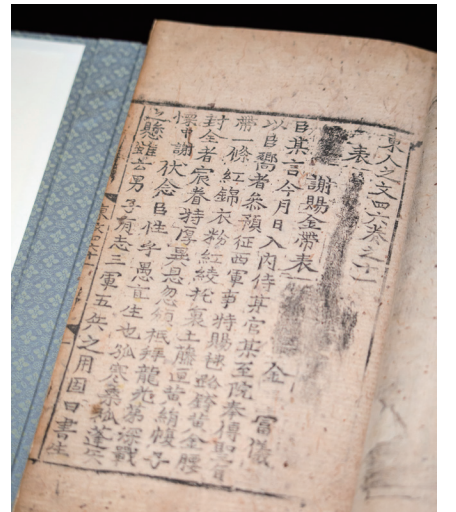 東人之文四六卷之十一
表
謝賜金帶表 金富儀
臣某言今月日入內侍某官某至院奉傳聖旨
以臣嚮者叅預征西軍事特賜毬路鈒黃金腰
帶一條紅錦衣粉紅綾托裏土藤匣黃絹幞子
封全者宸眷特厚異恩忽頒祗拜龍光第深戰
慄中謝伏念臣性乎愚直生也孤寒桑弧蓬矢
之懸雖云男子有志三軍五兵之用固曰書生